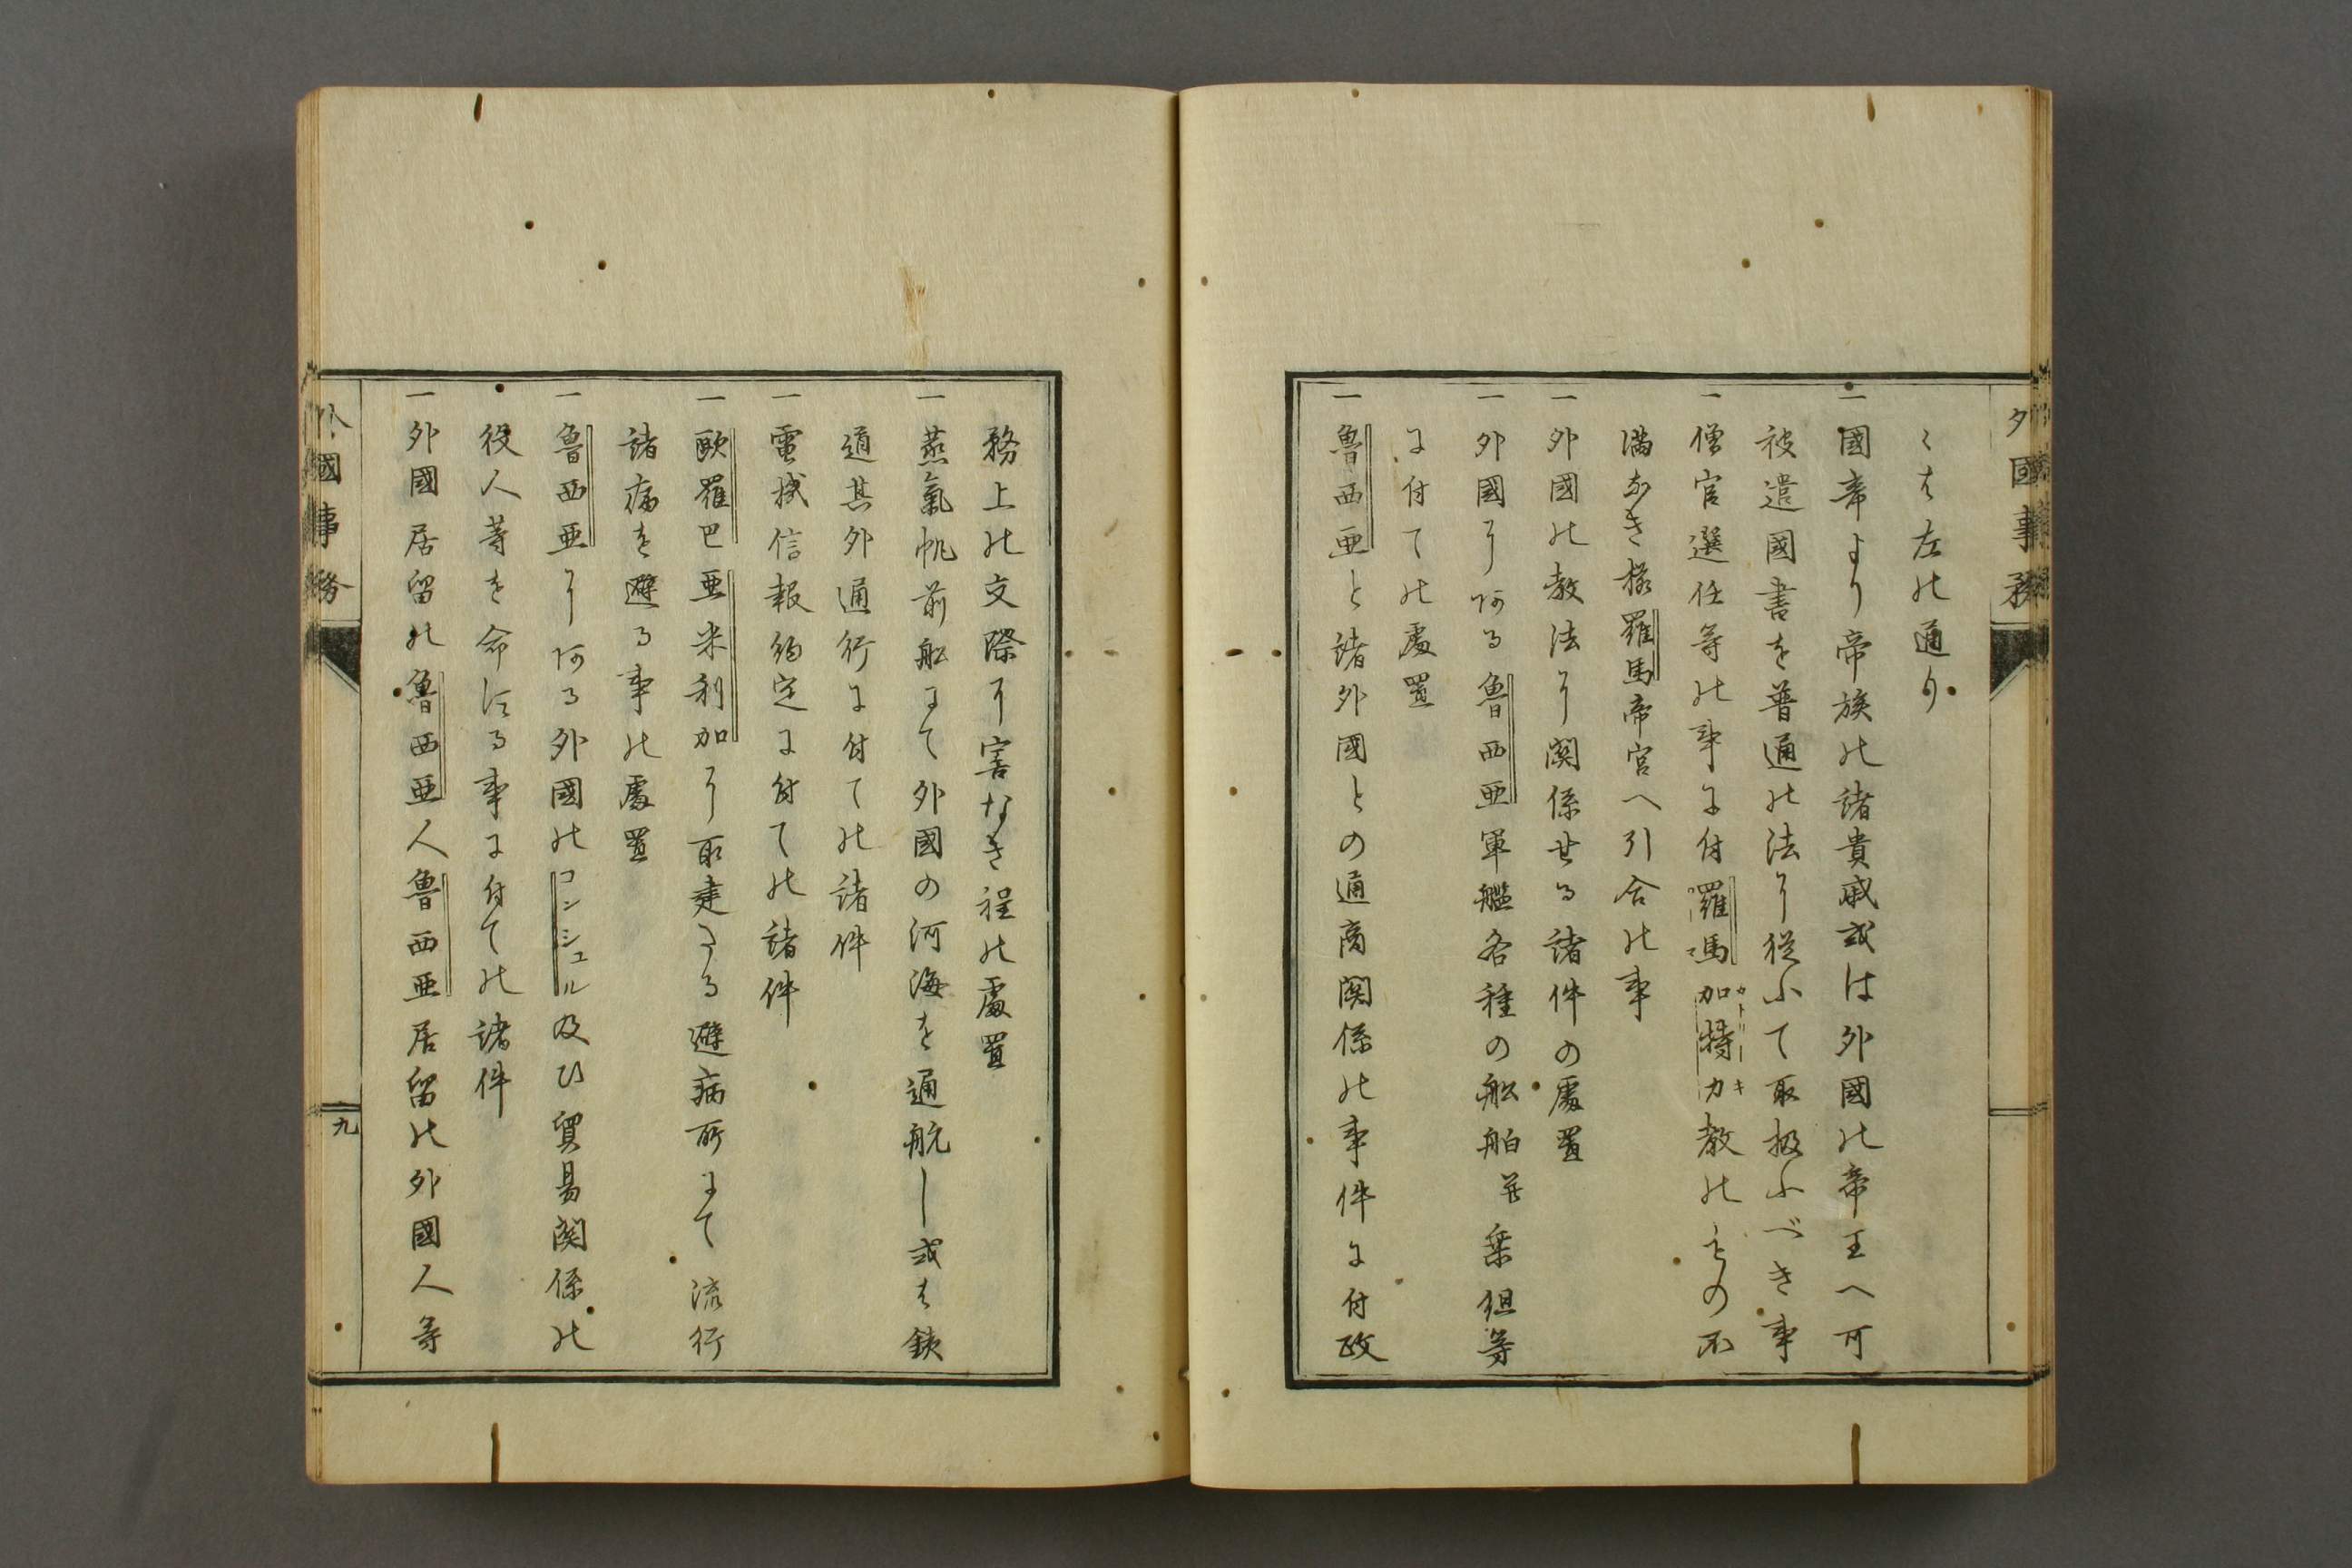 外國事務
ゝは左の通り
一國帝より帝族の諸貴戚或は外國の帝王へ可
被遣國書を普通の法に從ふて取扱ふべき事
一僧官選任等の事に付羅馬加特力教のものゝ不
滿なき樣羅馬帝宮へ引合の事
一外國の教法に關係せる諸件の處置
一外國に阿る魯西亜軍艦各種の舩舶并乗組等
に付ての處置
一魯西亜と諸外國との通商関係の事件に付政
務上の交際に害なき程の處置
一蒸氣帆前舩にて外國の河海を通航し或は鉄
道其外通行に付ての諸件
一電機信報約定に付ての諸件
一歐羅巴亜米利加に取建たる避病所にて流行
諸病を避る事の處置
一魯西亜に阿る外國のコンシュル及ひ貿易関係の
役人等を命する事に付ての諸件
一外國居留の魯西亜人魯西亜居留の外國人等
外國事務
九